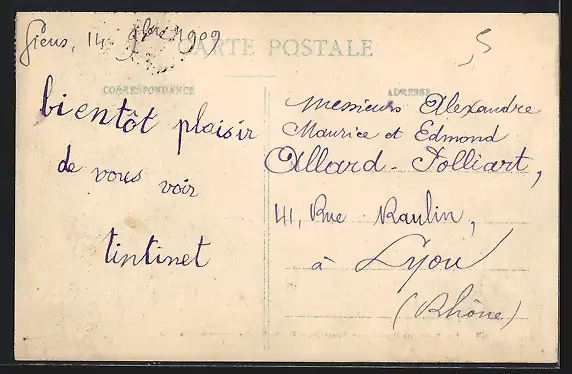 Giens, 14 9bre 1909
CARTE POSTALE
5
CORRESPONDANCE
ADRESSE
bientôt plaisir
de vous voir
tintinet
Messieurs Alexandre
Maurice et Edmond
Allard-Folliart,
41, Rue Raulin,
à Lyon
(Rhône)